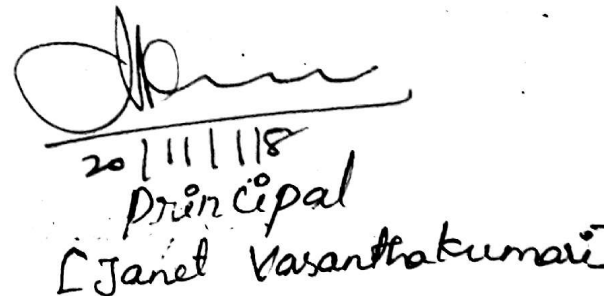 20/11/118
Principal
[Janet Vasanthakumari